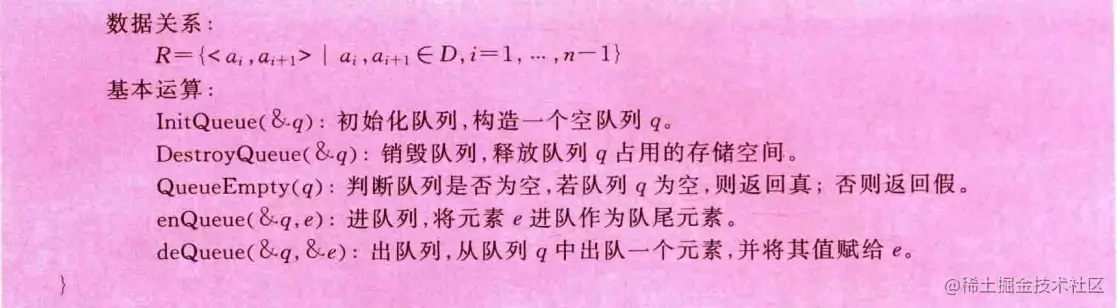 数据关系:
R={<aᵢ,aᵢ₊₁> | aᵢ,aᵢ₊₁∈D,i=1, …,n−1}
基本运算:
InitQueue(&q): 初始化队列,构造一个空队列 q。
DestroyQueue(&q): 销毁队列,释放队列 q 占用的存储空间。
QueueEmpty(q): 判断队列是否为空,若队列 q 为空,则返回真; 否则返回假。
enQueue(&q,e): 进队列,将元素 e 进队作为队尾元素。
deQueue(&q, &e): 出队列,从队列 q 中出队一个元素,并将其值赋给 e。
}
@稀土掘金技术社区